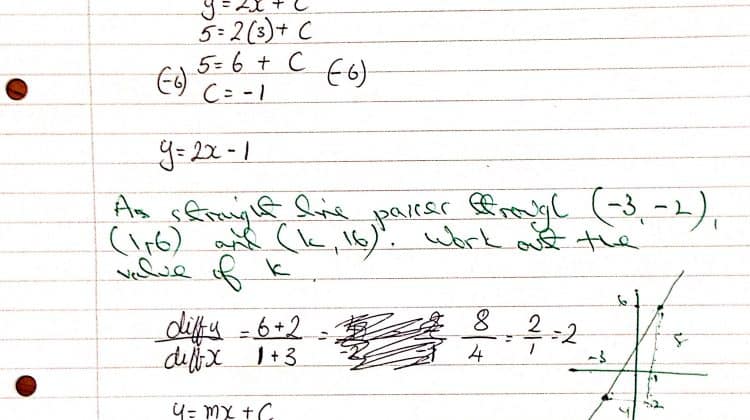 y = 2x + C
5 = 2(3) + C
(-6) 5 = 6 + C (-6)
C = -1
y = 2x - 1
A straight line passes through (-3, -2),
(1, 6) and (k, 16). Work out the
value of k.
diff y / diff x = 6+2 / 1+3 = 8 / 4 = 2 / 1 = 2
6
-3
y = mx + C